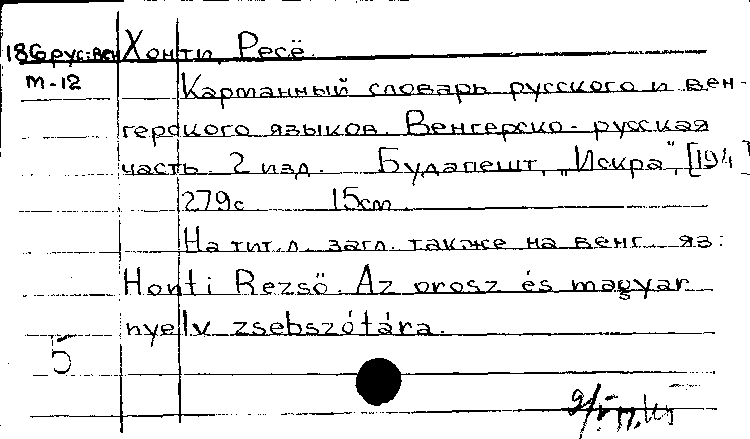 186рус:вен Хонти, Ресё.
М-12 Карманный словарь русского и вен-
герского языков. Венгерско-русская
часть. 2 изд. Будапешт, „Искра", [194 ]
279с 15см.
На тит.л. загл. также на венг. яз:
Honti Rezsö. Az orosz és magyar
nyelv zsebszótára.
5